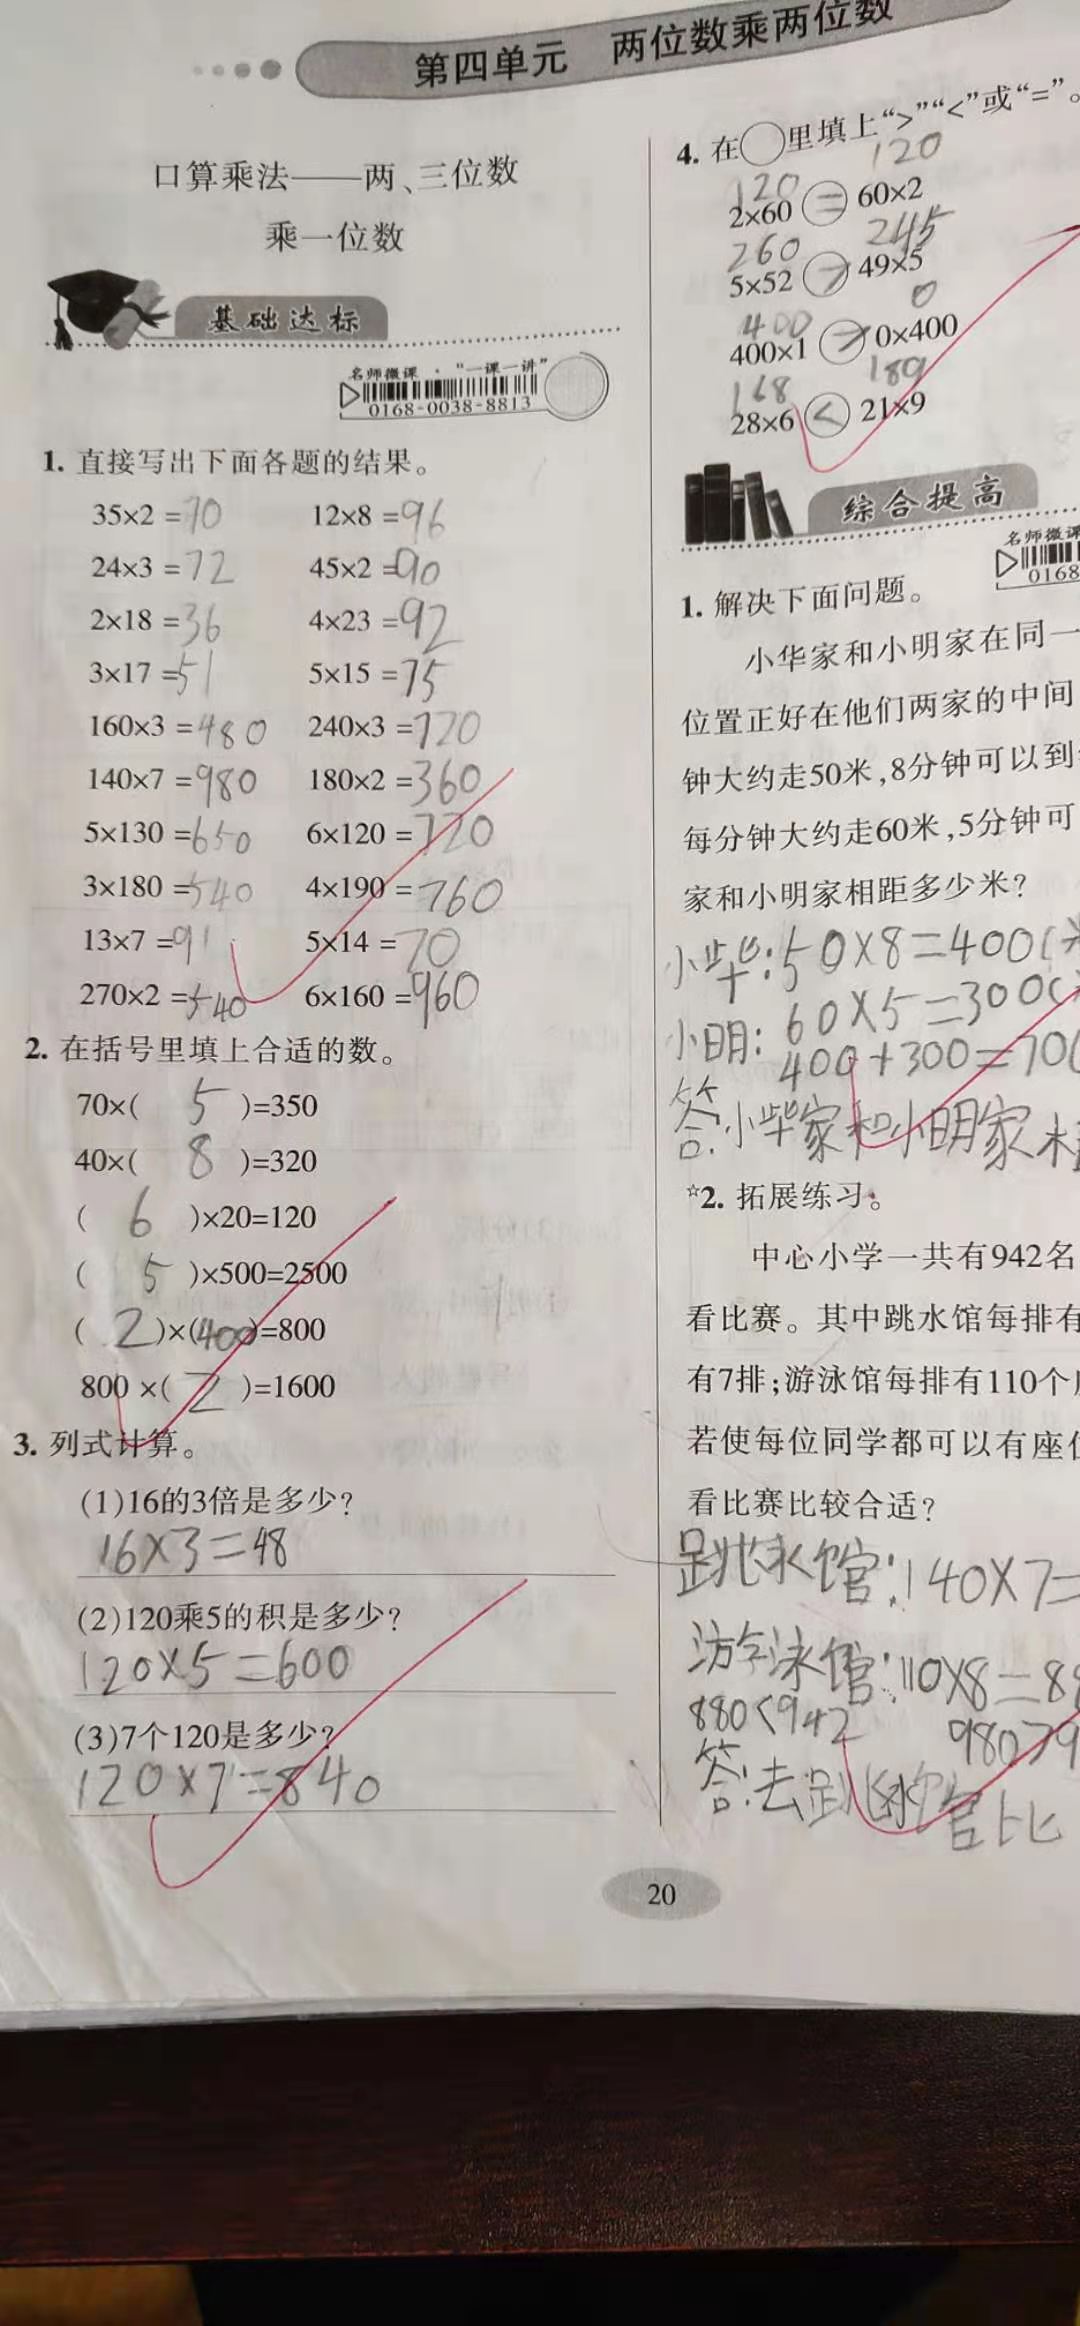 第四单元 两位数乘两位数
口算乘法——两、三位数
乘一位数
基础达标
名师微课·“一课一讲”
0168-0038-8813
1. 直接写出下面各题的结果。
35×2=70 12×8=96
24×3=72 45×2=90
2×18=36 4×23=92
3×17=51 5×15=75
160×3=480 240×3=720
140×7=980 180×2=360
5×130=650 6×120=720
3×180=540 4×190=760
13×7=91 5×14=70
270×2=540 6×160=960
2. 在括号里填上合适的数。
70×( 5 )=350
40×( 8 )=320
( 6 )×20=120
( 5 )×500=2500
( 2 )×(400)=800
800×( 2 )=1600
3. 列式计算。
(1)16的3倍是多少?
16×3=48
(2)120乘5的积是多少?
120×5=600
(3)7个120是多少?
120×7=840
4. 在○里填上“>”“<”或“=”。
120 120
2×60 = 60×2
260 245
5×52 > 49×5
400 0
400×1 > 0×400
168 189
28×6 < 21×9
综合提高
名师微课
0168
1. 解决下面问题。
小华家和小明家在同一
位置正好在他们两家的中间
钟大约走50米,8分钟可以到
每分钟大约走60米,5分钟可
家和小明家相距多少米?
小华:50×8=400(米
小明:60×5=300(
400+300=70
答:小华家和小明家相
☆2. 拓展练习。
中心小学一共有942名
看比赛。其中跳水馆每排有
有7排;游泳馆每排有110个
若使每位同学都可以有座位
看比赛比较合适?
跳水馆:140×7=
游泳馆:110×8=88
880<942 980>9
答:去跳水馆比
20